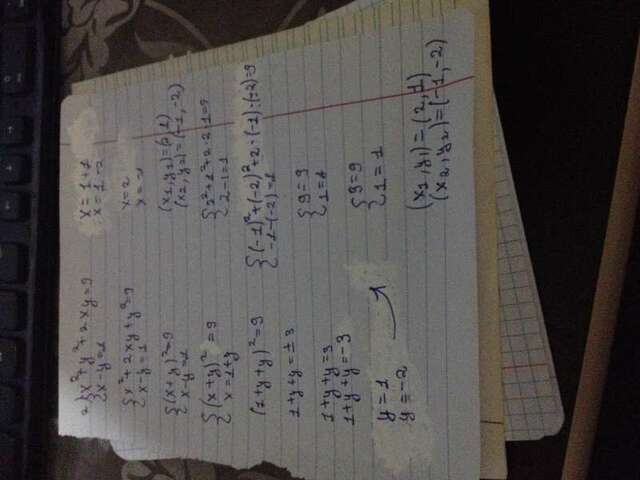 2 { x² + y² + 2xy = 9
{ x - y = 1
{ x² + 2xy + y² = 9
{ x - y = 1
{ (x+y)² = 9
x - y = 1
{ (x+y)² = 9
x = 1 + y
(1 + y + y)² = 9
1 + y + y = ± 3
1 + y + y = 3
1 + y + y = -3
y = 1
y = -2
x = 1 + 1
x = 1 - 2
x = 2
x = -1
(x1, y1) = (2, 1)
(x2, y2) = (-1, -2)
{ 2² + 1² + 2·2·1 = 9
{ 2 - 1 = 1
{ (-1)² + (-2)² + 2·(-1)·(-2) = 9
{ -1 - (-2) = 1
{ 9 = 9
{ 1 = 1
{ 9 = 9
{ 1 = 1
(x1, y1) = (2, 1)
(x2, y2) = (-1, -2)